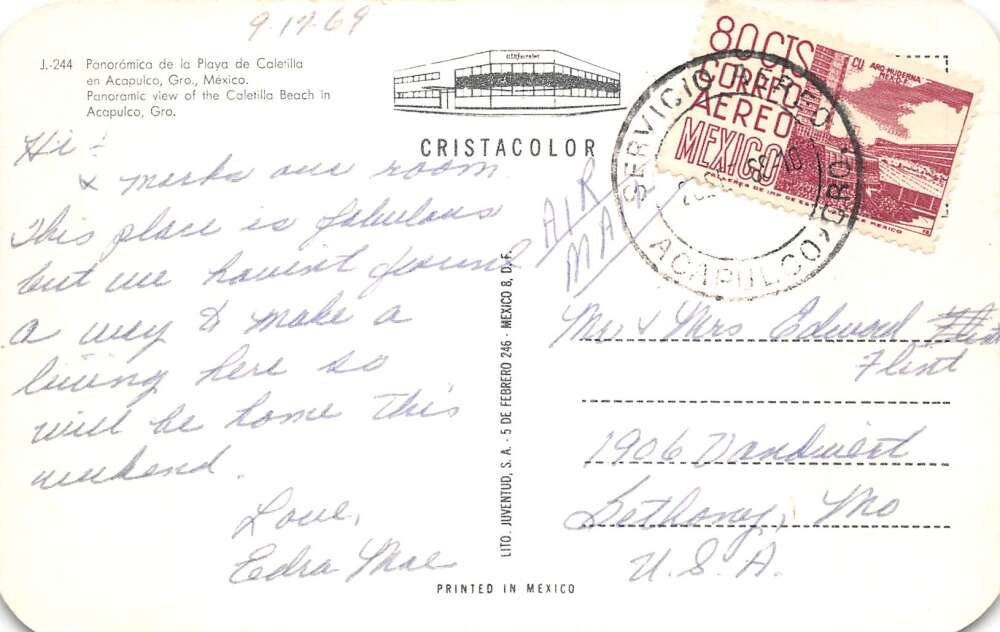 9-17-69
J.-244 Panorámica de la Playa de Caletilla
en Acapulco, Gro., México.
Panoramic view of the Caletilla Beach in
Acapulco, Gro.
CRISTACOLOR
Hi!
X marks our room.
This place is fabulous
but we haven't found
a way to make a
living here so
will be home this
weekend.
Love,
Edra Mae
LITO. JUVENTUD, S.A. - 5 DE FEBRERO 246 - MEXICO 8, D.F.
PRINTED IN MEXICO
80 CTS
CORREO
AEREO
MEXICO
CU ARQ. MODERNA
MEXICO
SERVICIO AEREO
ACAPULCO, GRO.
AIR
MAIL
Mr & Mrs Edward
Flint
1906 Vandivert
Bethany, Mo
U.S.A.